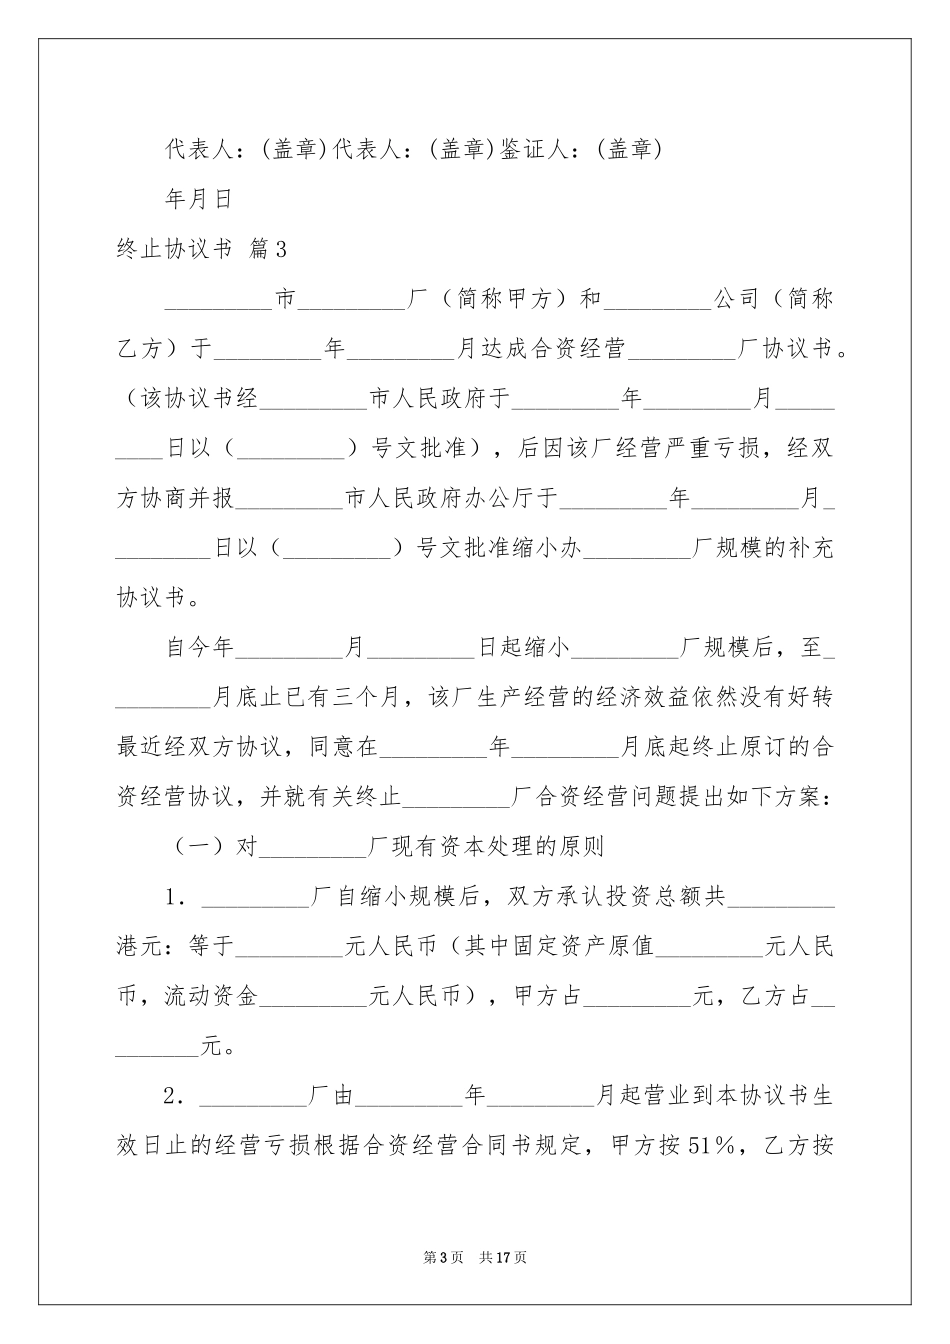 代表人：(盖章)代表人：(盖章)鉴证人：(盖章)
年月日
终止协议书 篇3
_________市_________厂（简称甲方）和_________公司（简称
乙方）于_________年_________月达成合资经营_________厂协议书。
（该协议书经_________市人民政府于_________年_________月_____
____日以（_________）号文批准），后因该厂经营严重亏损，经双
方协商并报_________市人民政府办公厅于_________年_________月_
________日以（_________）号文批准缩小办_________厂规模的补充
协议书。
自今年_________月_________日起缩小_________厂规模后，至_
________月底止已有三个月，该厂生产经营的经济效益依然没有好转
最近经双方协议，同意在_________年_________月底起终止原订的合
资经营协议，并就有关终止_________厂合资经营问题提出如下方案：
（一）对_________厂现有资本处理的原则
1．_________厂自缩小规模后，双方承认投资总额共_________
港元：等于_________元人民币（其中固定资产原值_________元人民
币，流动资金_________元人民币），甲方占_________元，乙方占__
_______元。
2．_________厂由_________年_________月起营业到本协议书生
效日止的经营亏损根据合资经营合同书规定，甲方按51％，乙方按
第3页 共17页